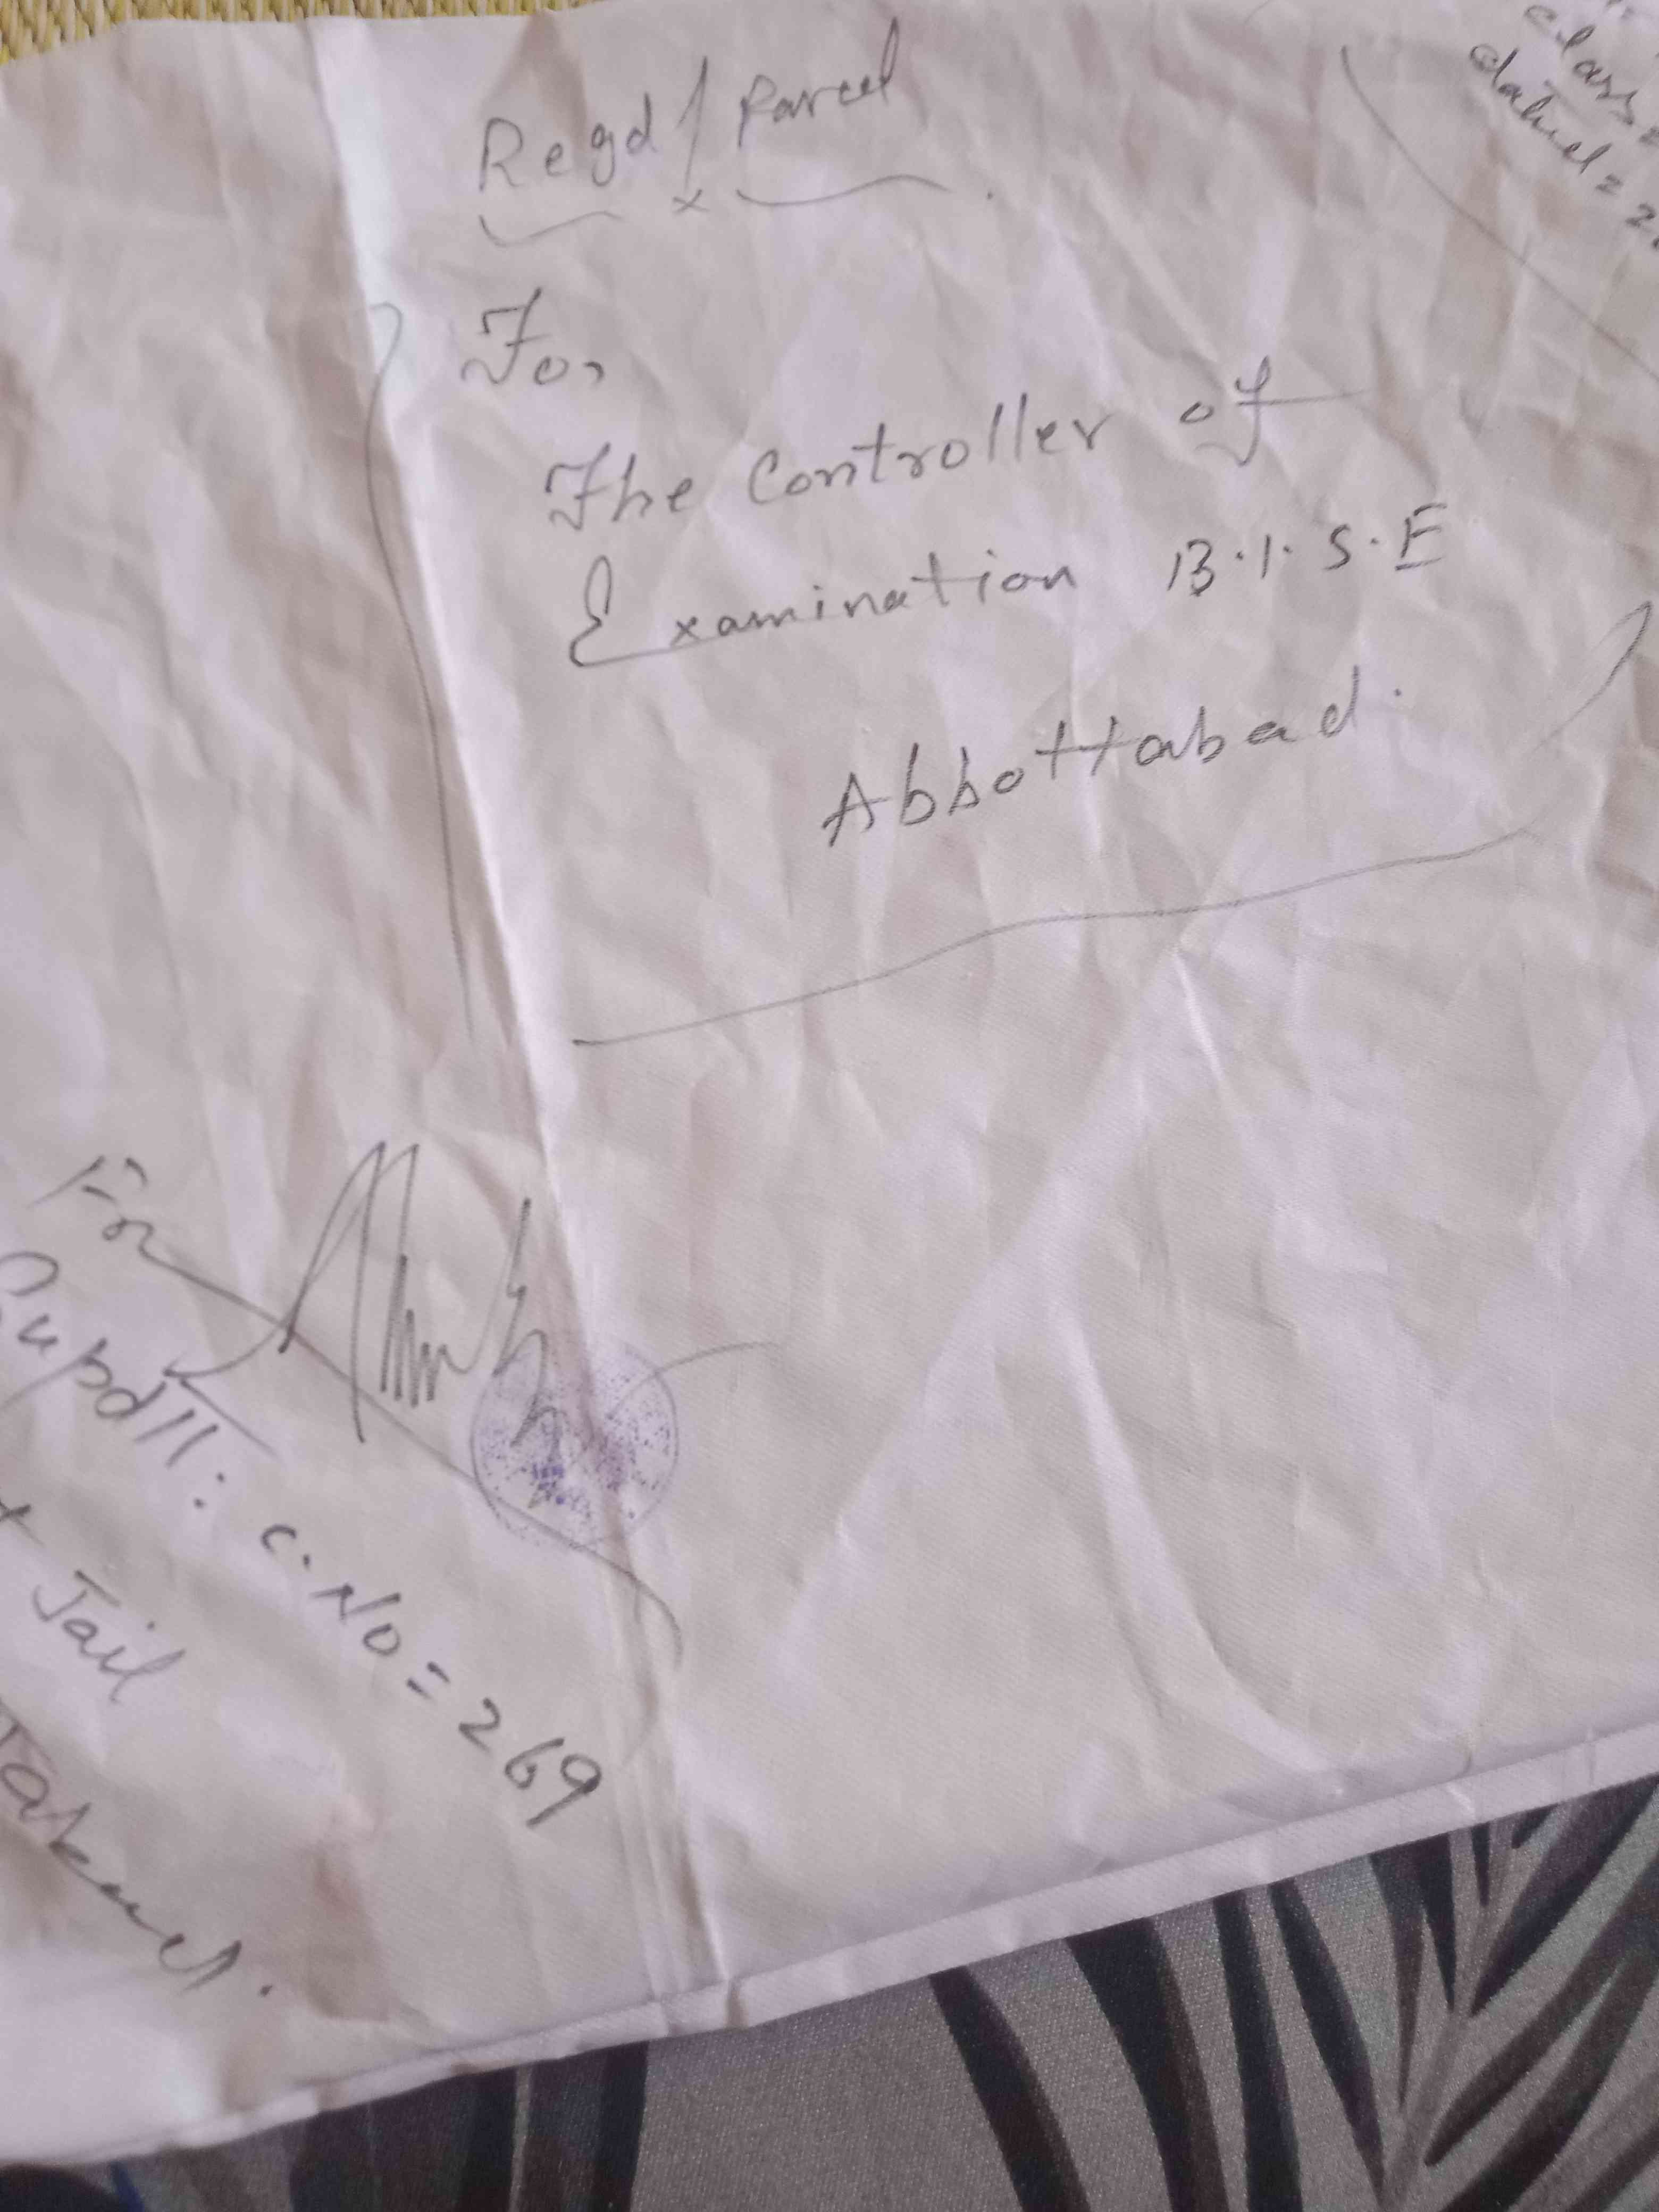 Regd/Parcel
To,
The Controller of
Examination B.I.S.E
Abbottabad.
class
dated = 2
Supdtt:
C.No = 269
Jail